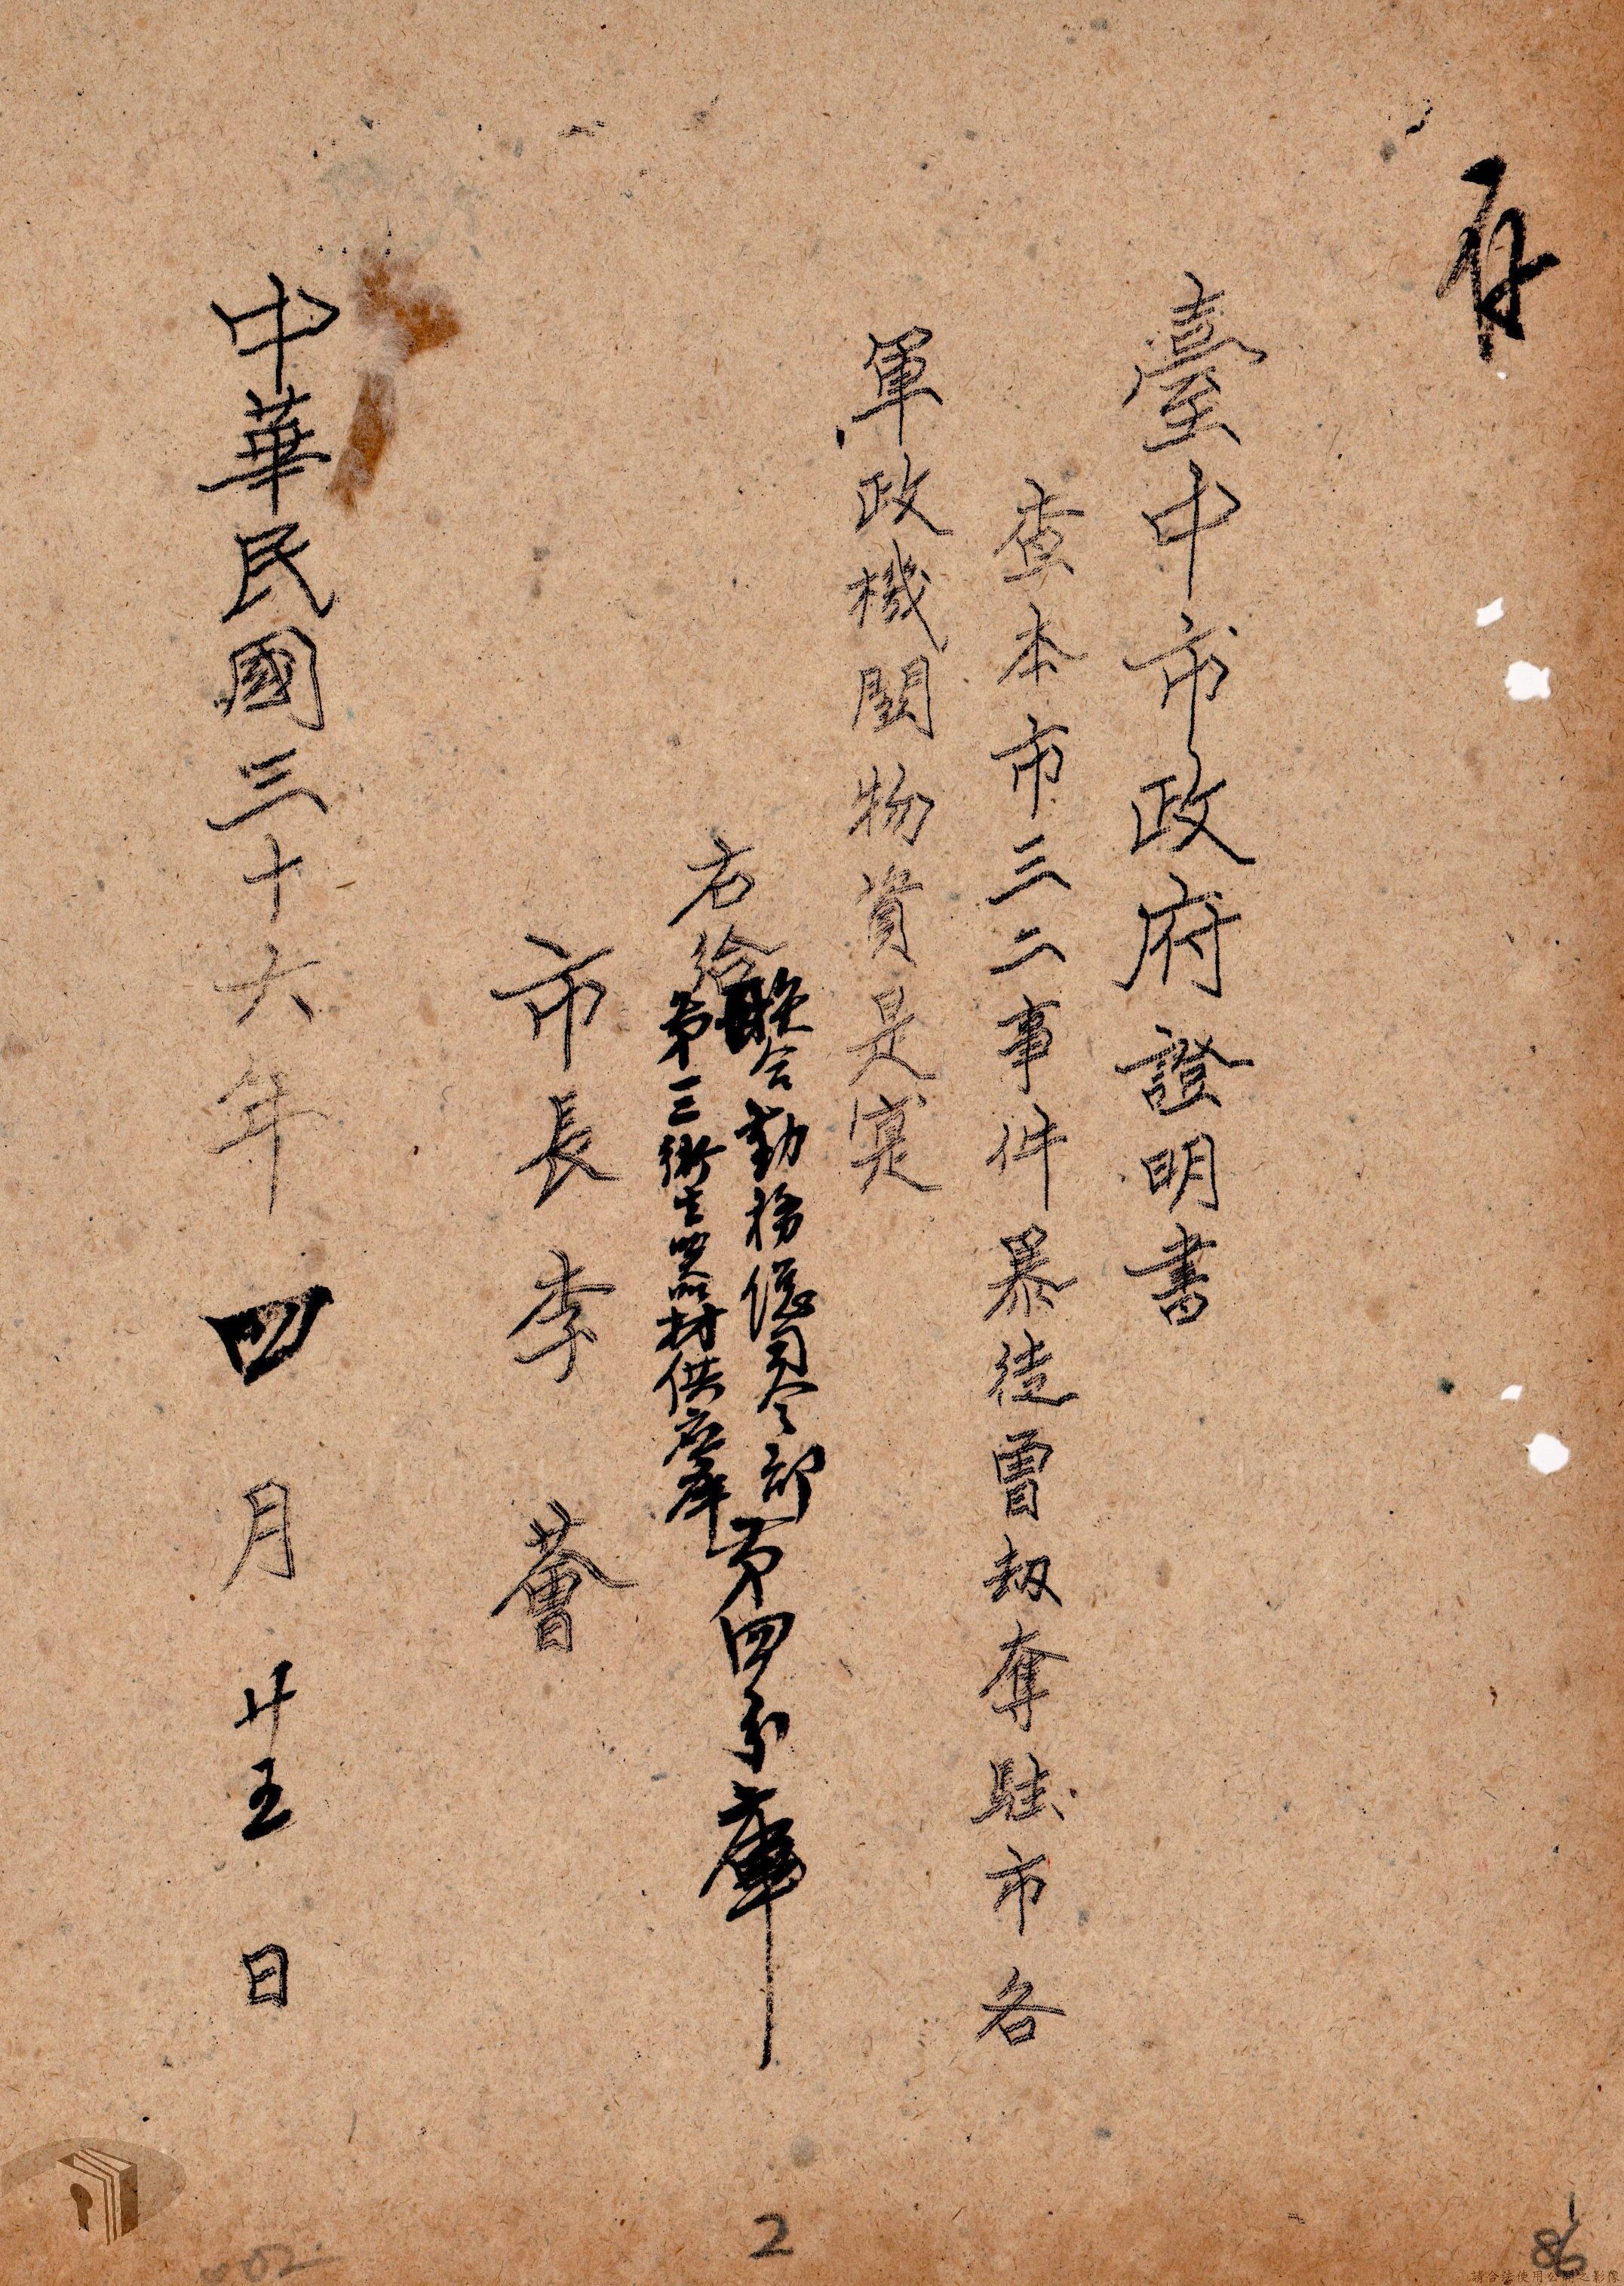 存
臺中市政府證明書
查本市三二事件暴徒曾劫奪駐市各
軍政機関物資是寔
右給
聯合勤務總司令部
第三衛生器材供应庫
第四分庫
市長李薈
中華民國三十六年四月廿五日
2
86
002
請合法使用公開之影像